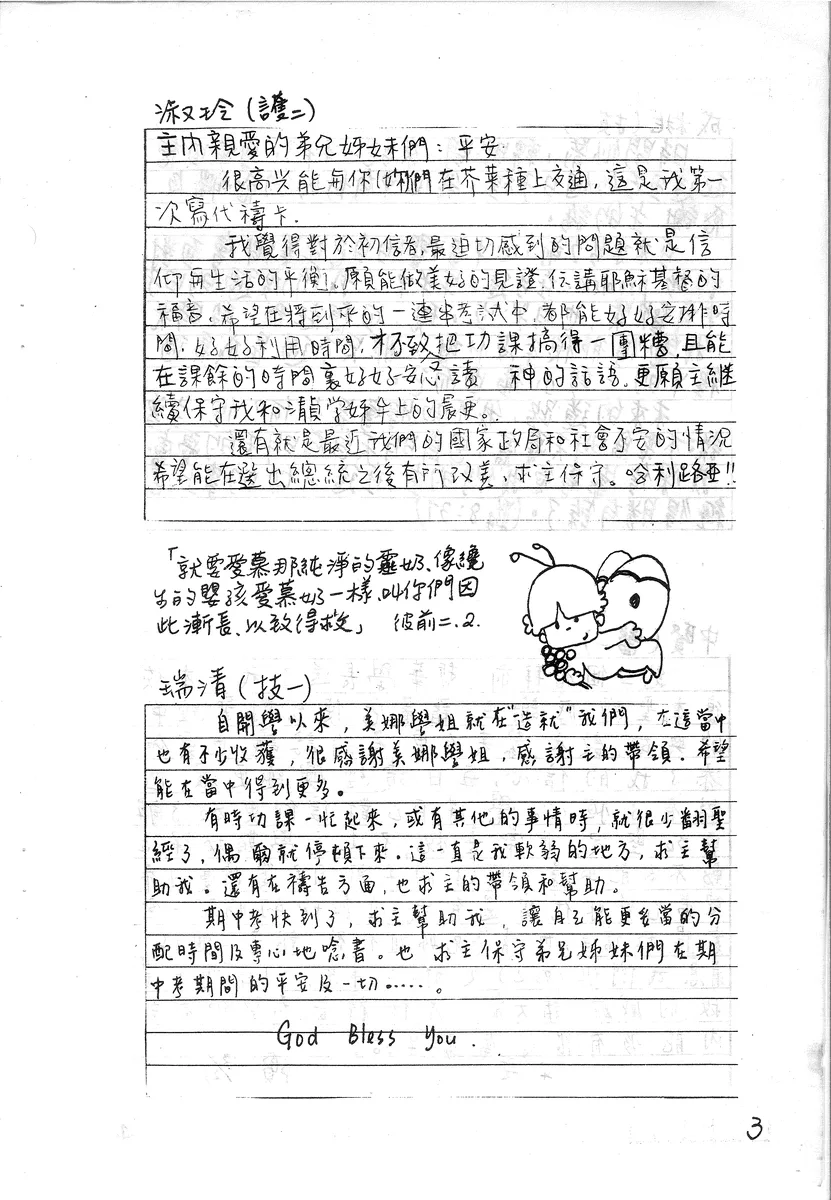 淑玲(護二)
主內親愛的弟兄姊妹們：平安
很高兴能與你(妳)們在芥菜種上交通，這是我第一
次寫代禱卡．
我覺得對於初信者，最迫切感到的問題就是信
仰與生活的平衡！願能做美好的見證，传講耶穌基督的
福音，希望在將到來的一連串考試中，都能好好安排時
間，好好利用時間，才不致把功課搞得一團糟，且能
在課餘的時間裏好好安息讀 神的話語，更願主繼
續保守我和 学姊 上的晨更。
還有就是最近我們的國家政局和社會不安的情況
希望能在選出總統之後有所改善，求主保守。哈利路亞!!
「就要愛慕那純淨的靈奶、像纔
生的嬰孩愛慕奶一樣、叫你們因
此漸長、以致得救」 彼前二.2.
瑞清(技一)
自開學以來，美娜學姐就在"造就"我們，在這當中
也有不少收獲，很感謝美娜學姐，感謝主的帶領．希望
能在當中得到更多。
有時功課一忙起來，或有其他的事情時，就很少翻聖
經了，偶爾就停頓下來。這一直是我軟弱的地方，求主幫
助我。還有在禱告方面，也求主的帶領和幫助。
期中考快到了，求主幫助我，讓自己能更妥當的分
配時間及專心地唸書。也 求主保守弟兄姊妹們在期
中考期間的平安及一切……。
God Bless You.
3